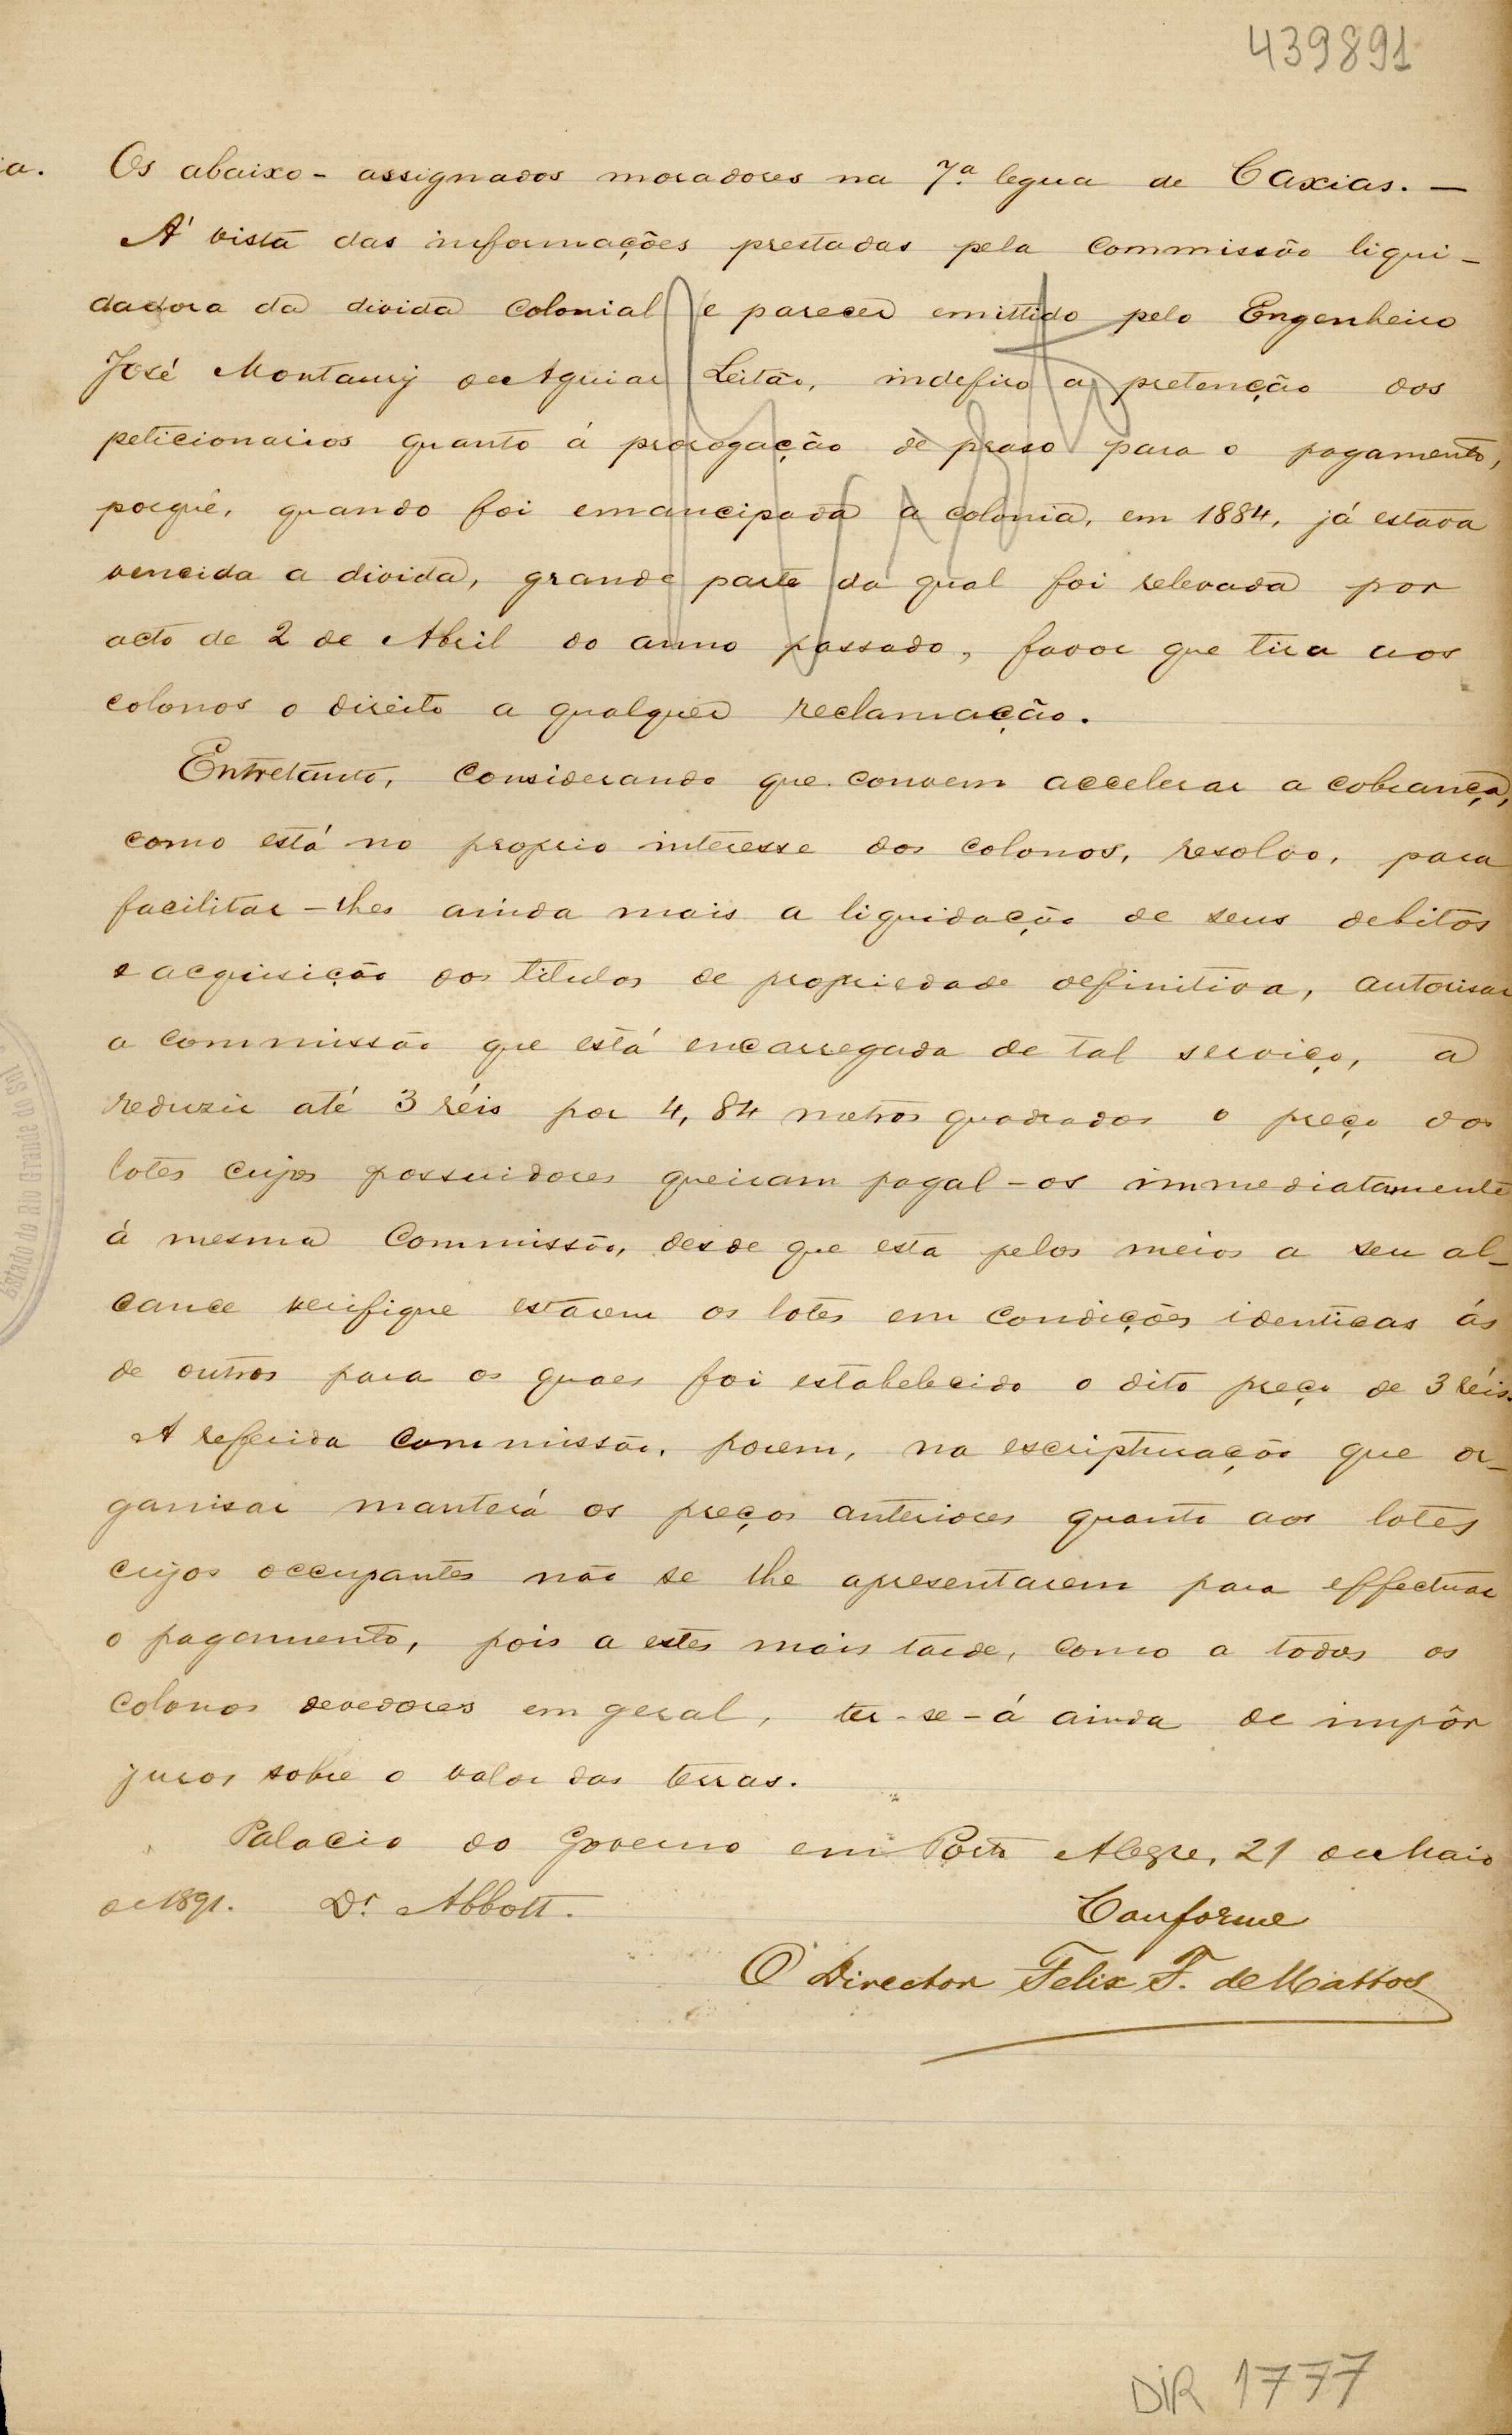 439891
a. Os abaixo-assignados moradores na 7.ª legua de Caxias. —
Á vista das informações prestadas pela Commissão liqui-
dadora da divida colonial e parecer emittido pelo Engenheiro
José Montaury de Aguiar Leitão, indefiro a pretenção dos
peticionarios quanto á prorogação de praso para o pagamento,
porque, quando foi emancipada a colonia, em 1884, já estava
vencida a divida, grande parte da qual foi relevada por
acto de 2 de Abril do anno passado, favor que tira aos
colonos o direito a qualquer reclamação.
Entretanto, considerando que convem accelerar a cobrança,
como está no proprio interesse dos colonos, resolvo, para
facilitar-lhes ainda mais a liquidação de seus debitos
e acquisição dos titulos de propriedade definitiva, autorisar
a commissão que está encarregada de tal serviço, a
reduzir até 3 réis por 4,84 metros quadrados o preço dos
lotes cujos possuidores queiram pagal-os immediatamente
á mesma Commissão, desde que esta pelos meios a seu al-
cance verifique estarem os lotes em condições identicas ás
de outros para os quaes foi estabelecido o dito preço de 3 réis.
A referida Commissão, porem, na escripturação que or-
ganisar manterá os preços anteriores quanto aos lotes
cujos occupantes não se lhe apresentarem para effectuar
o pagamento, pois a estes mais tarde, como a todos os
colonos devedores em geral, ter-se-á ainda de impôr
juros sobre o valor das terras.
Palacio do Governo em Porto Alegre, 21 de Maio
de 1891. Dr. Abbott.
Conforme
O Director Felix F. de Mattos
Estado do Rio Grande do Sul
DIR 1777